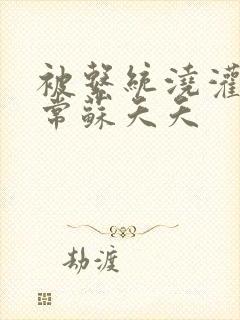 被繫統澆灌
常蘇夭夭
劫渡